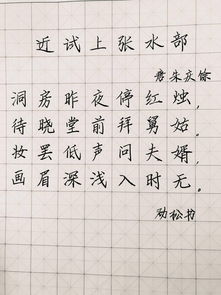 近试上张水部
唐朱庆馀
洞房昨夜停红烛，
待晓堂前拜舅姑。
妆罢低声问夫婿，
画眉深浅入时无。
劲松书